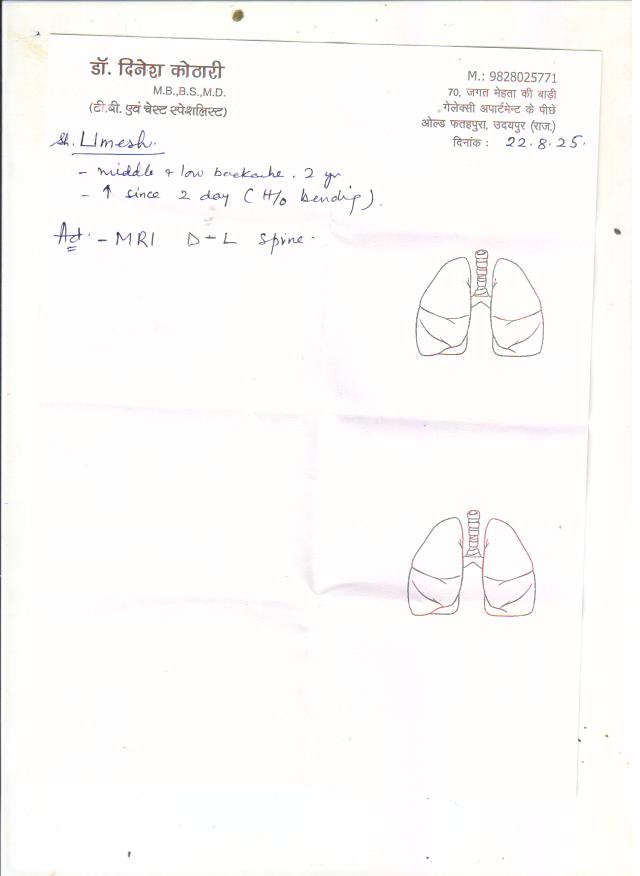 डॉ. दिनेश कोठारी
M.B.,B.S.,M.D.
(टी.बी. एवं चेस्ट स्पेशलिस्ट)
M.: 9828025771
70, जगत मेहता की बाड़ी
गेलेक्सी अपार्टमेन्ट के पीछे
ओल्ड फतहपुरा, उदयपुर (राज.)
दिनांक : 22.8.25.
Sh. Umesh.
- middle & low backache. 2 yr
- ↑ since 2 day (H/o bending).
Ad. - MRI D-L Spine.